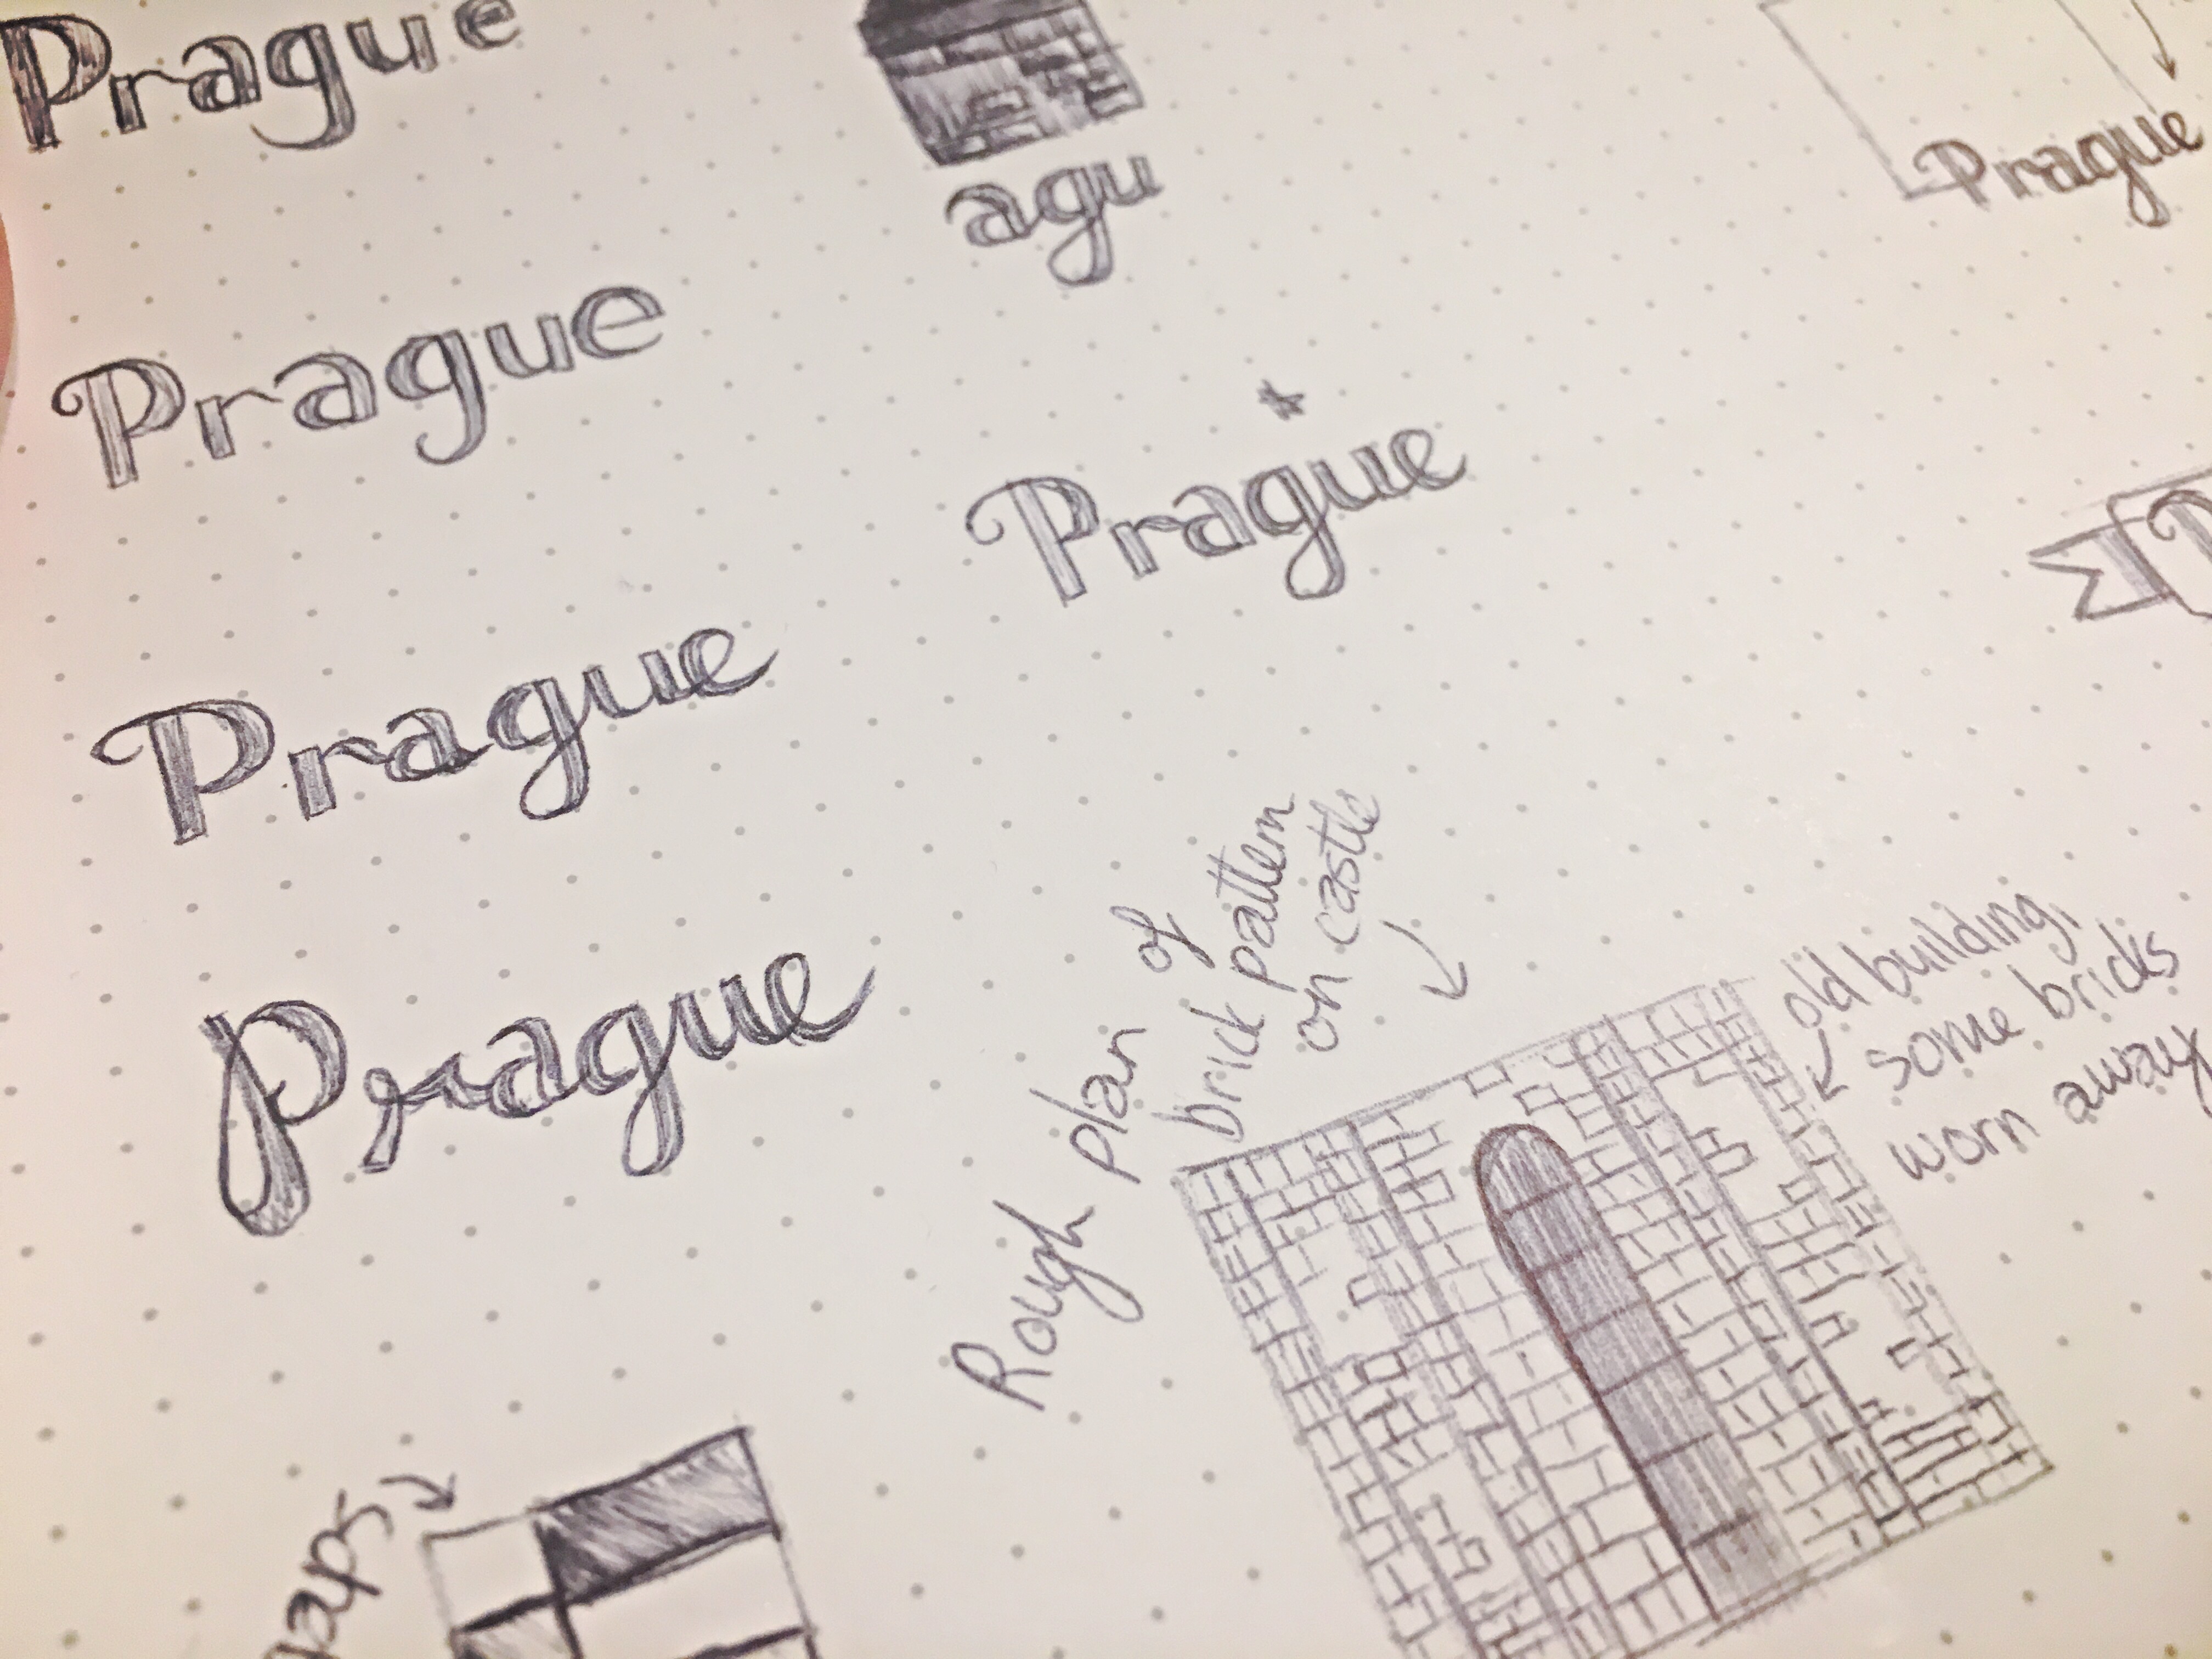 Prague
agu
Prague
Prague
Prague
Prague
Prague
Rough plan of
brick pattern
on castle
old building,
some bricks
worn away